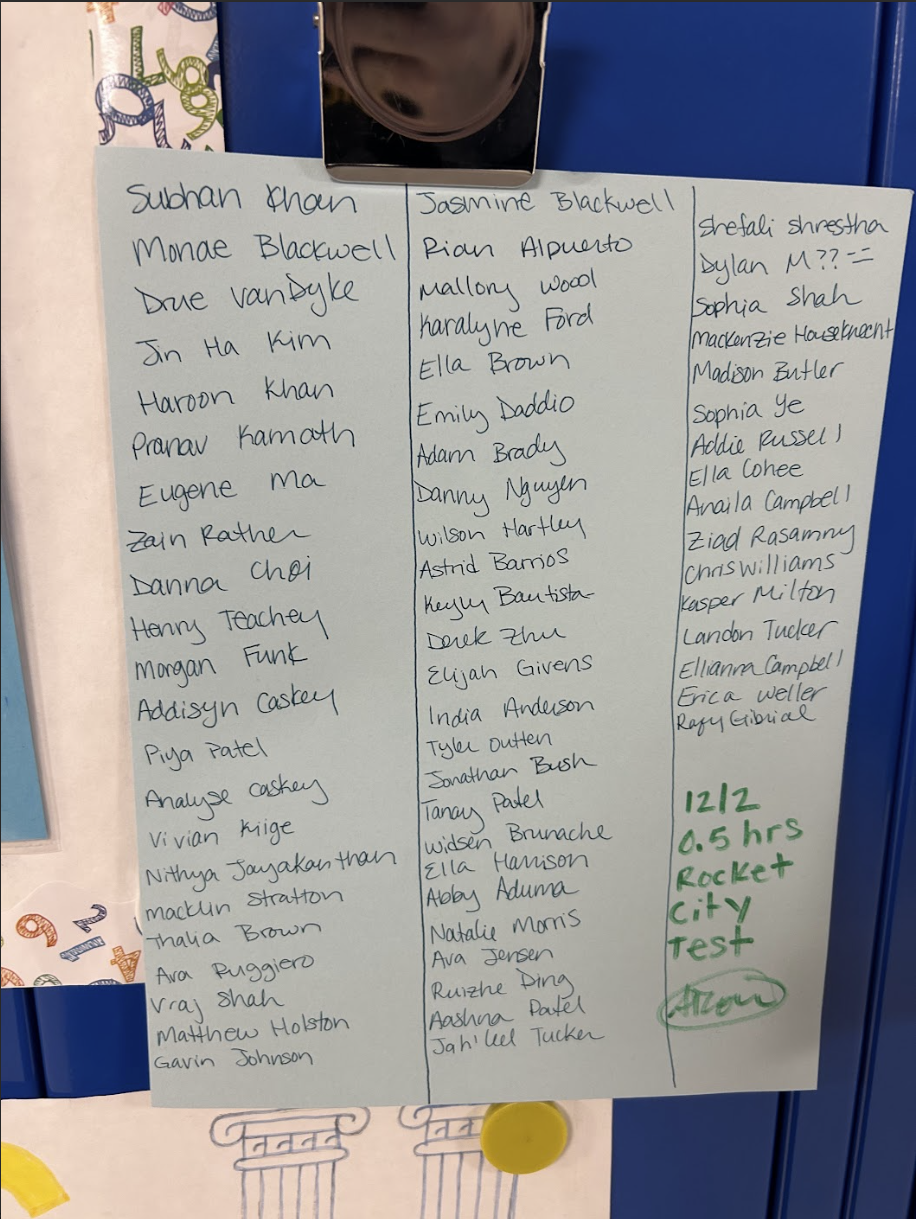 Subhan Khan
Monae Blackwell
Drue VanDyke
Jin Ha Kim
Haroon Khan
Pranav Kamath
Eugene Ma
Zain Rather
Danna Choi
Henry Teachey
Morgan Funk
Addisyn Caskey
Piya Patel
Analyse Caskey
Vivian Kiige
Nithya Jayakanthan
Macklin Stratton
Thalia Brown
Ava Ruggiero
Vraj Shah
Matthew Holston
Gavin Johnson
Jasmine Blackwell
Rian Alpuerto
Mallory Wood
Karalyne Ford
Ella Brown
Emily Daddio
Adam Brady
Danny Nguyen
Wilson Hartley
Astrid Barrios
Keyly Bautista
Derek Zhu
Elijah Givens
India Anderson
Tyler Outten
Jonathan Bush
Tanay Patel
Widsen Brunache
Ella Harrison
Abby Aduma
Natalie Morris
Ava Jensen
Ruizhe Ding
Aashna Patel
Tucker
Shefali Shrestha
Dylan M??
Sophia Shah
Mackenzie Houseknecht
Madison Butler
Sophia Ye
Addie Russell
Ella Cohee
Anaila Campbell
Ziad Rasamny
Chris Williams
Kasper Milton
Landon Tucker
Ellianna Campbell
Erica Weller
12/2
0.5 hrs
Rocket
City
Test